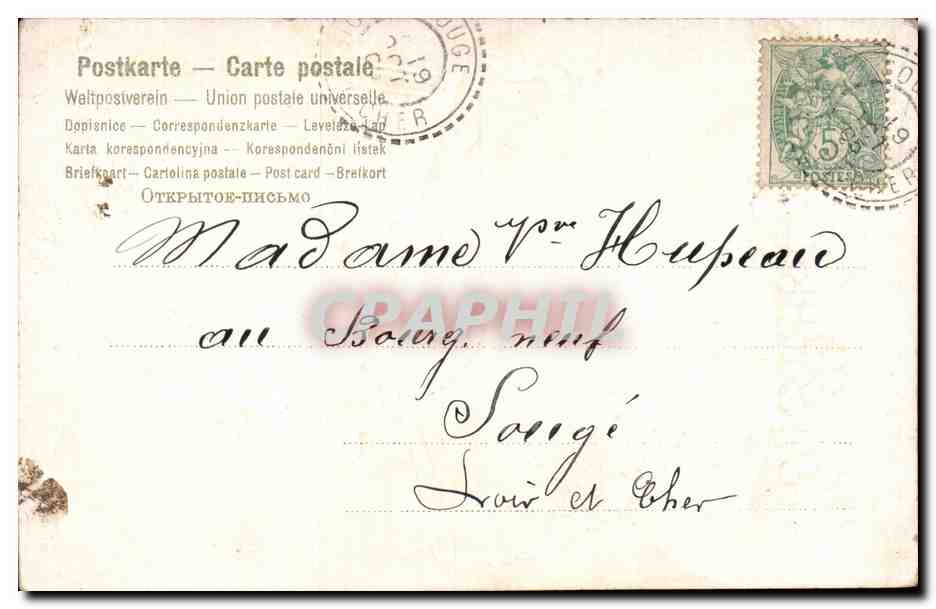 Postkarte — Carte postale
Weltpostverein — Union postale universelle
Dopisnice — Correspondenzkarte — Levelező-Lap
Karta korespondencyjna — Korespondenční lístek
Briefkaart — Cartolina postale — Post card — Brefkort
Открытое-письмо
OUGE
19
CHER
5
POSTES
19
ER
Madame Hupeau
au Bourg. neuf
Sougé
Loir et Cher
CPAPHIL